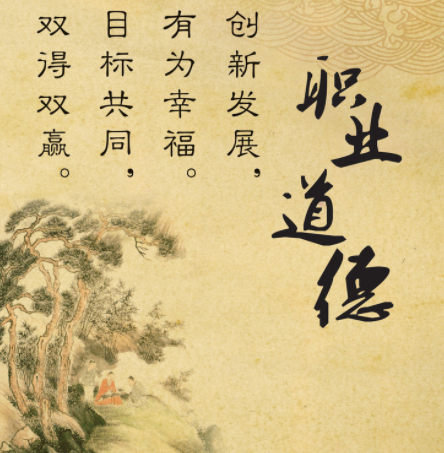 职业道德
创新发展,
有为幸福。
目标共同,
双得双赢。